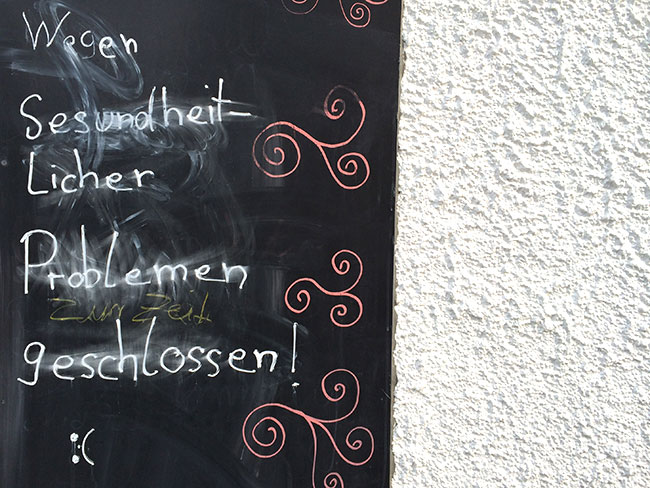 Wegen
Gesundheit-
Licher
Problemen
Zur Zeit
geschlossen!
:(